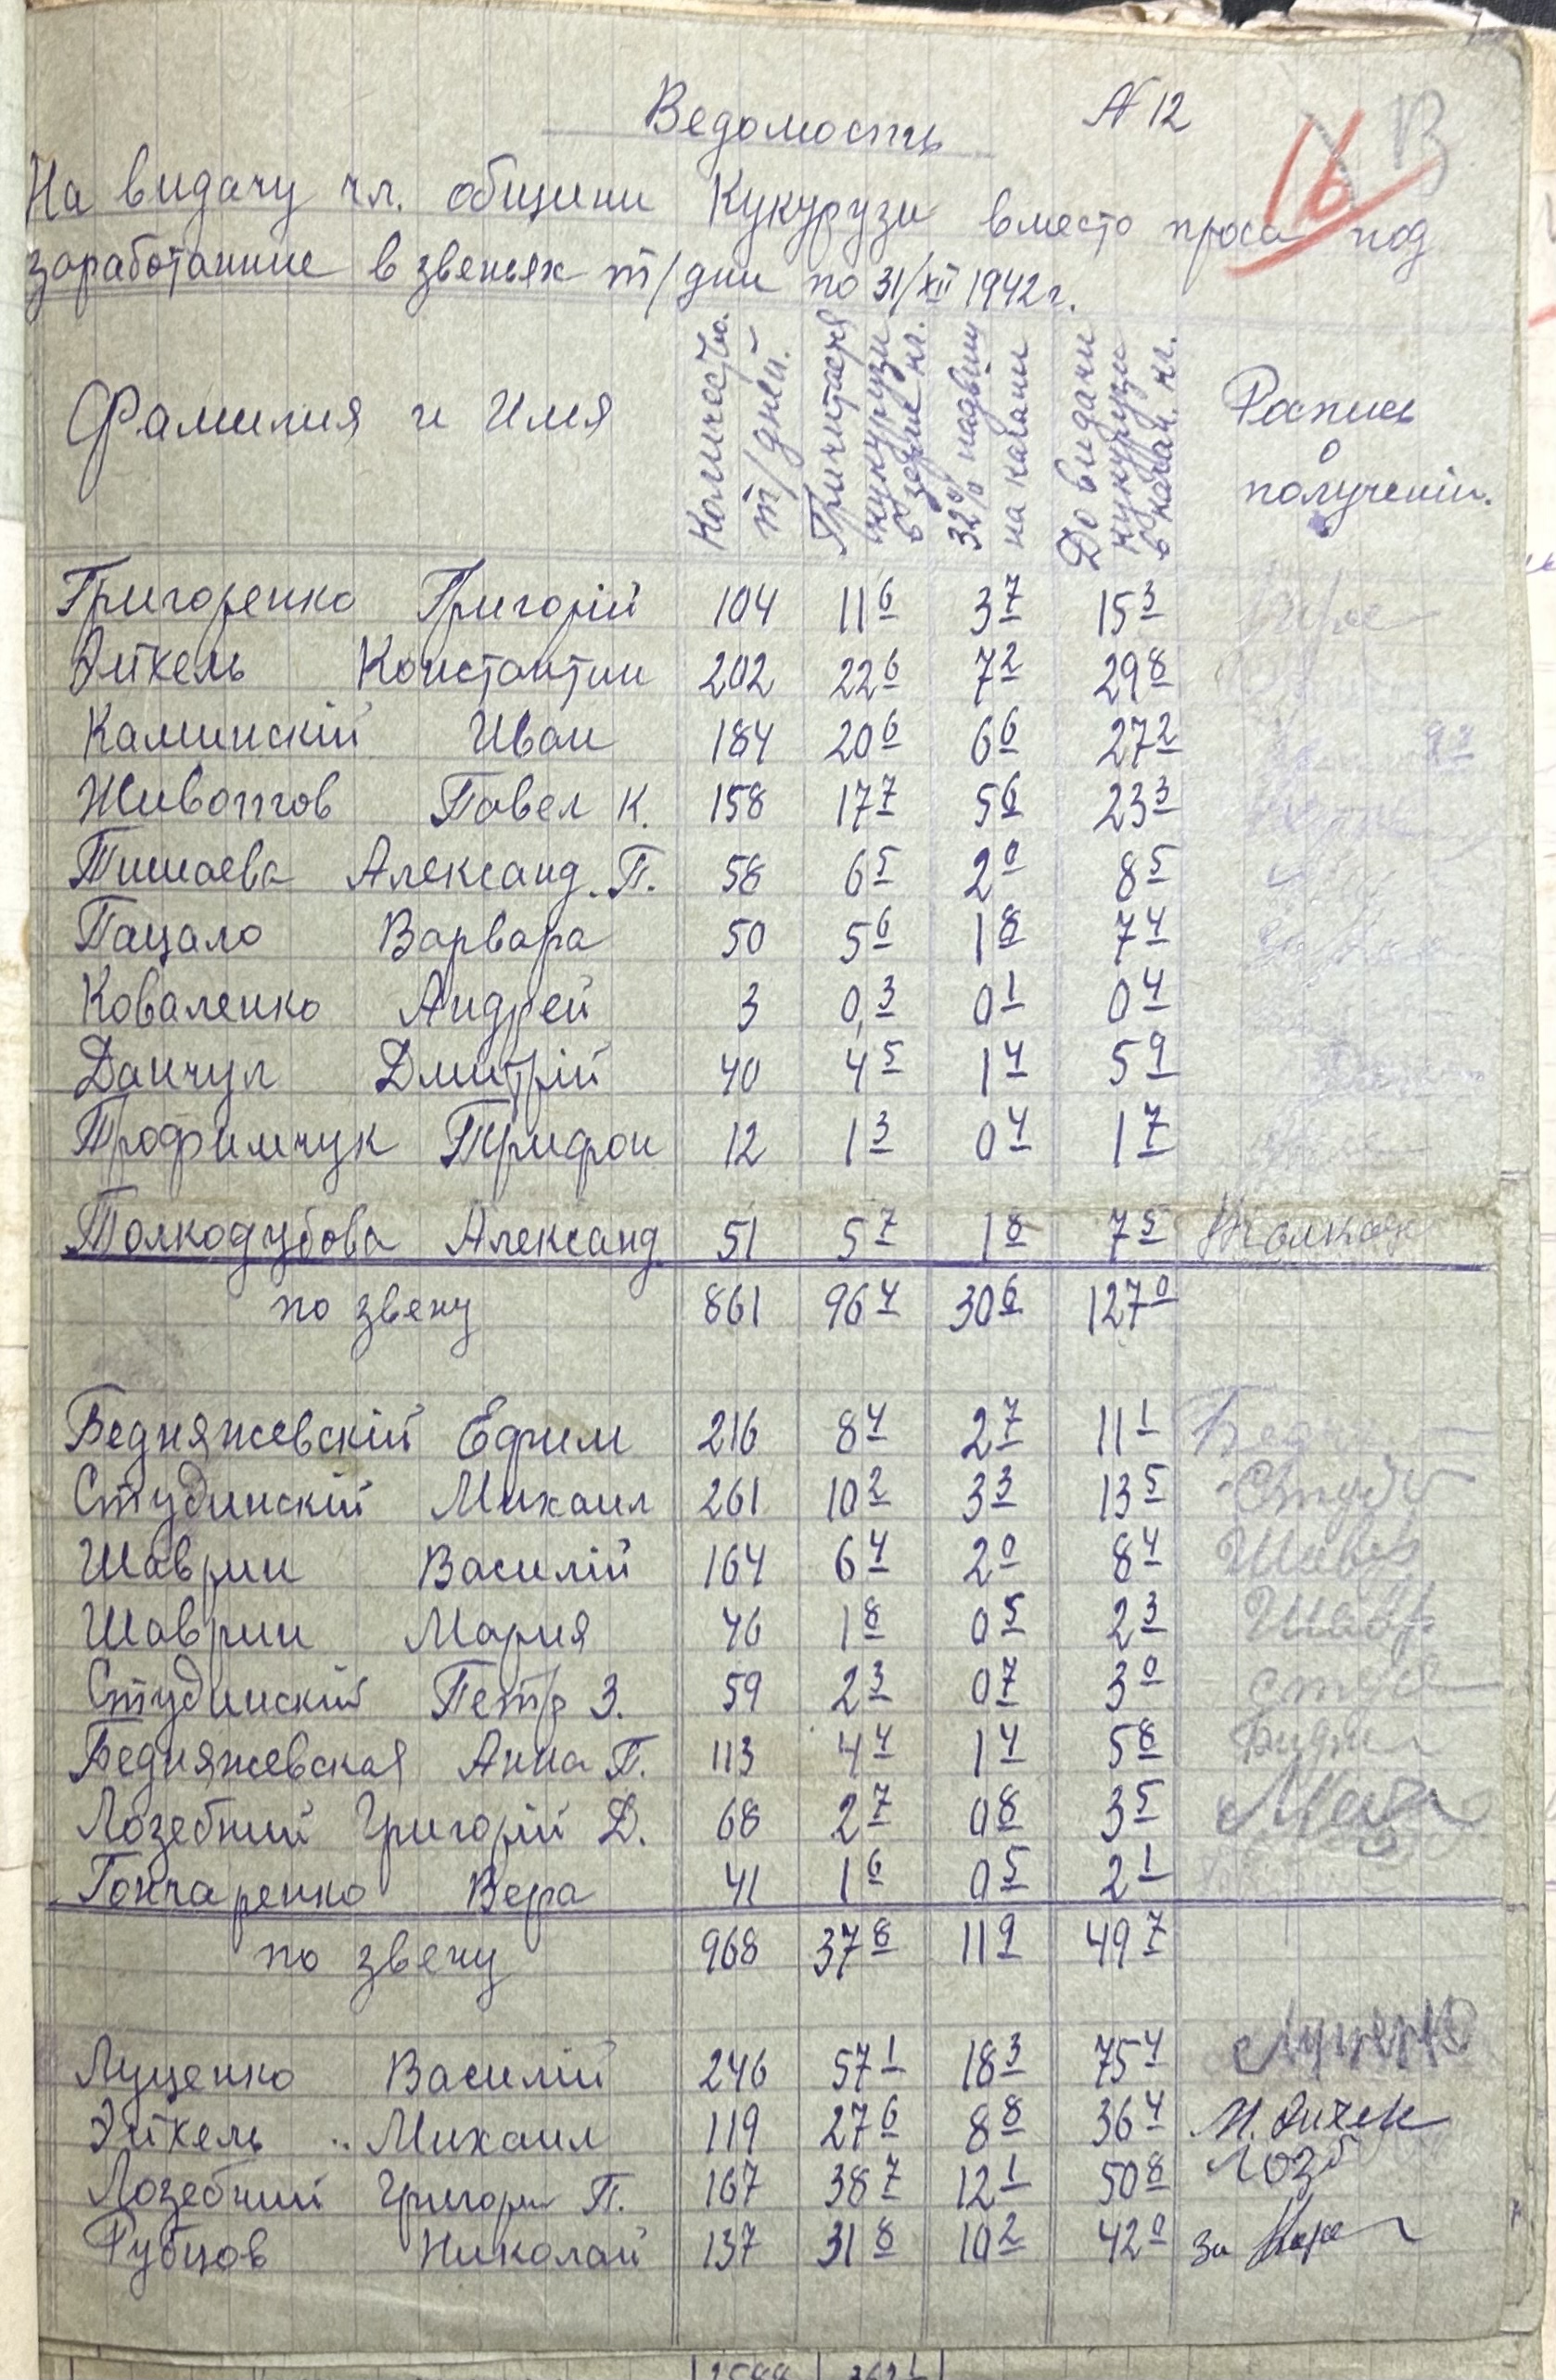 Ведомость № 12
16
13
На видачу чл. общини Кукурузи вместо проса под
заработанние в звеньях т/дни по 31/XII 1942 г.
Фамилия и Имя
Количество. т/дней.
Причитается кукурузи в зерне кг.
32% надбыш на качани
До видачи кукурузи в качан. кг.
Роспись о полученіи.
Григоренко Григорій 104 11 6 3 7 15 3
Эйхель Константин 202 22 6 7 2 29 8
Каминскій Иван 184 20 6 6 6 27 2
Животов Павел К. 158 17 7 5 6 23 3
Тишаева Александ. П. 58 6 5 2 0 8 5
Пацало Варвара 50 5 6 1 8 7 4
Коваленко Андрей 3 0,3 0 1 0 4
Данчул Дмитрій 40 4 5 1 4 5 9
Трофимчук Трифон 12 1 3 0 4 1 7
Толкодубова Александ. 51 5 7 1 8 7 5
по звену 861 96 4 30 6 127 0
Бедняжевскій Ефим 216 8 4 2 7 11 1
Студинскій Михаил 261 10 2 3 3 13 5 Студи
Шаврин Василій 164 6 4 2 0 8 4 Шавр
Шаврин Мария 46 1 8 0 5 2 3 Шавр
Студинскій Петр З. 59 2 3 0 7 3 0
Бедняжевская Анна П. 113 4 4 1 4 5 8
Лозебний Григорій Д. 68 2 7 0 8 3 5
Гончаренко Вера 41 1 6 0 5 2 1
по звену 968 37 8 11 9 49 7
Луценко Василій 246 57 1 18 3 75 4
Эйхель Михаил 119 27 6 8 8 36 4
Лозебний Григори П. 167 38 7 12 1 50 8 Лозб
Рубцов Николай 137 31 8 10 2 42 0 за